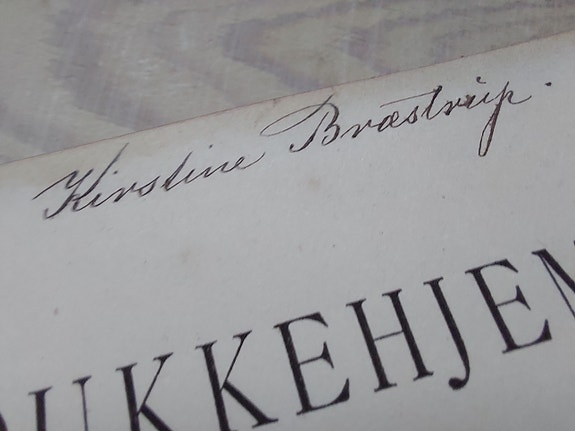 Kirstine Bræstrup.
UKKEHJEM